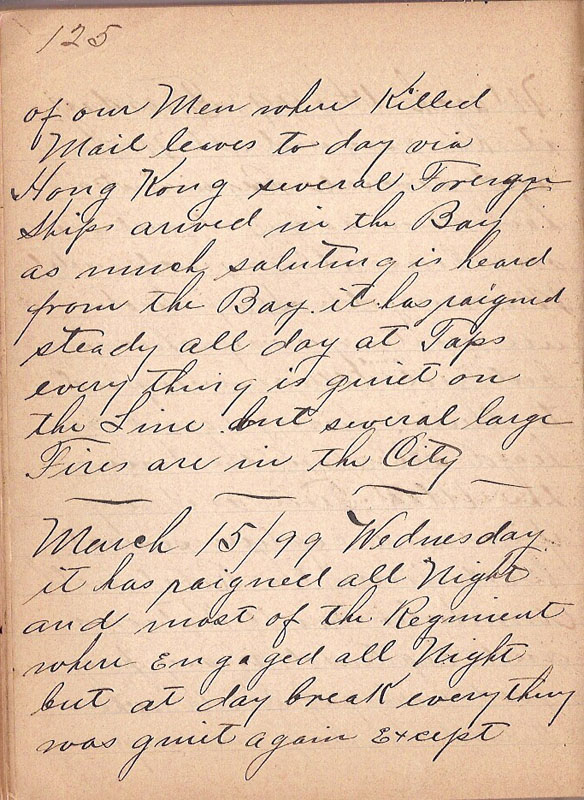 125
of our Men where Killed
Mail leaves to day via
Hong Kong several Foreign
Ships arived in the Bay
as much saluting is heard
from the Bay. it has raigned
steady all day at Taps
every thing is quiet on
the Line but several large
Fires are in the City
March 15/99 Wednesday
it has raigned all Night
and most of the Regmient
where Engaged all Night
but at day break everything
was quiet again Except